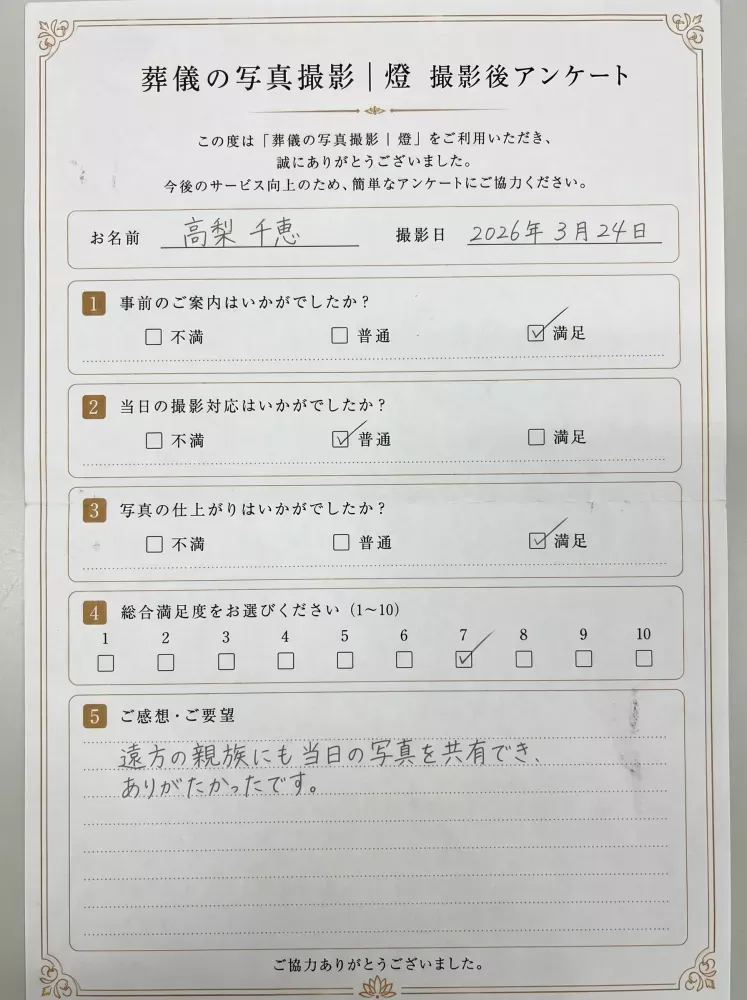 葬儀の写真撮影｜燈 撮影後アンケート
この度は「葬儀の写真撮影｜燈」をご利用いただき、
誠にありがとうございました。
今後のサービス向上のため、簡単なアンケートにご協力ください。
お名前 高梨 千恵 撮影日 2026年 3月 24日
1 事前のご案内はいかがでしたか？
不満 普通 満足
2 当日の撮影対応はいかがでしたか？
不満 普通 満足
3 写真の仕上がりはいかがでしたか？
不満 普通 満足
4 総合満足度をお選びください（1〜10）
1 2 3 4 5 6 7 8 9 10
5 ご感想・ご要望
遠方の親族にも当日の写真を共有でき、
ありがたかったです。
ご協力ありがとうございました。